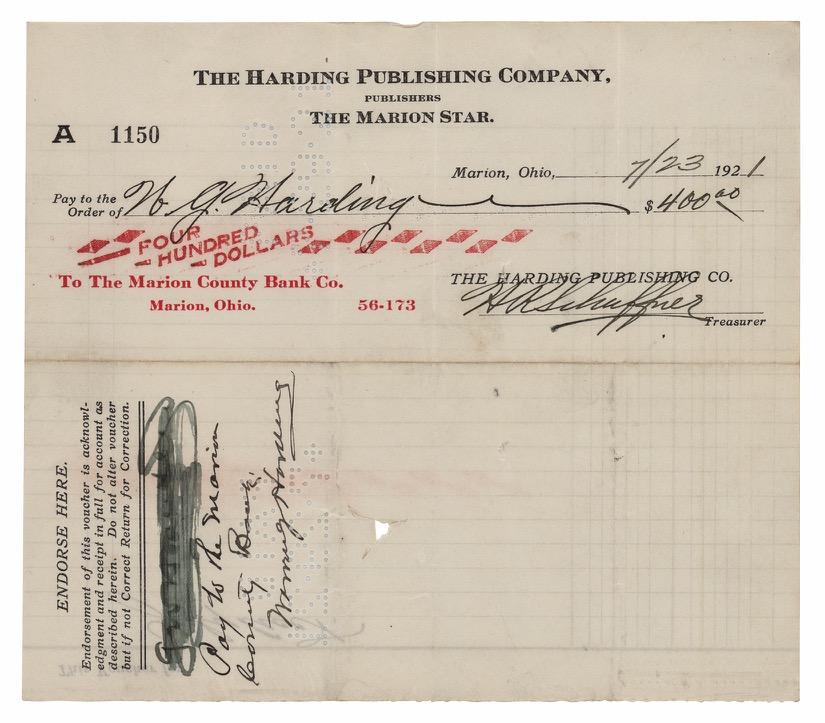 THE HARDING PUBLISHING COMPANY,
PUBLISHERS
THE MARION STAR.
A 1150
Marion, Ohio, 7/23 1921
Pay to the
Order of W. G. Harding $400.00
FOUR
HUNDRED
DOLLARS
To The Marion County Bank Co.
Marion, Ohio. 56-173
THE HARDING PUBLISHING CO.
HR Schaffner
Treasurer
ENDORSE HERE.
Endorsement of this voucher is acknowl-
edgment and receipt in full for account as
described herein. Do not alter voucher
but if not Correct Return for Correction.
Pay to the Marion
County Bank
Warren G Harding